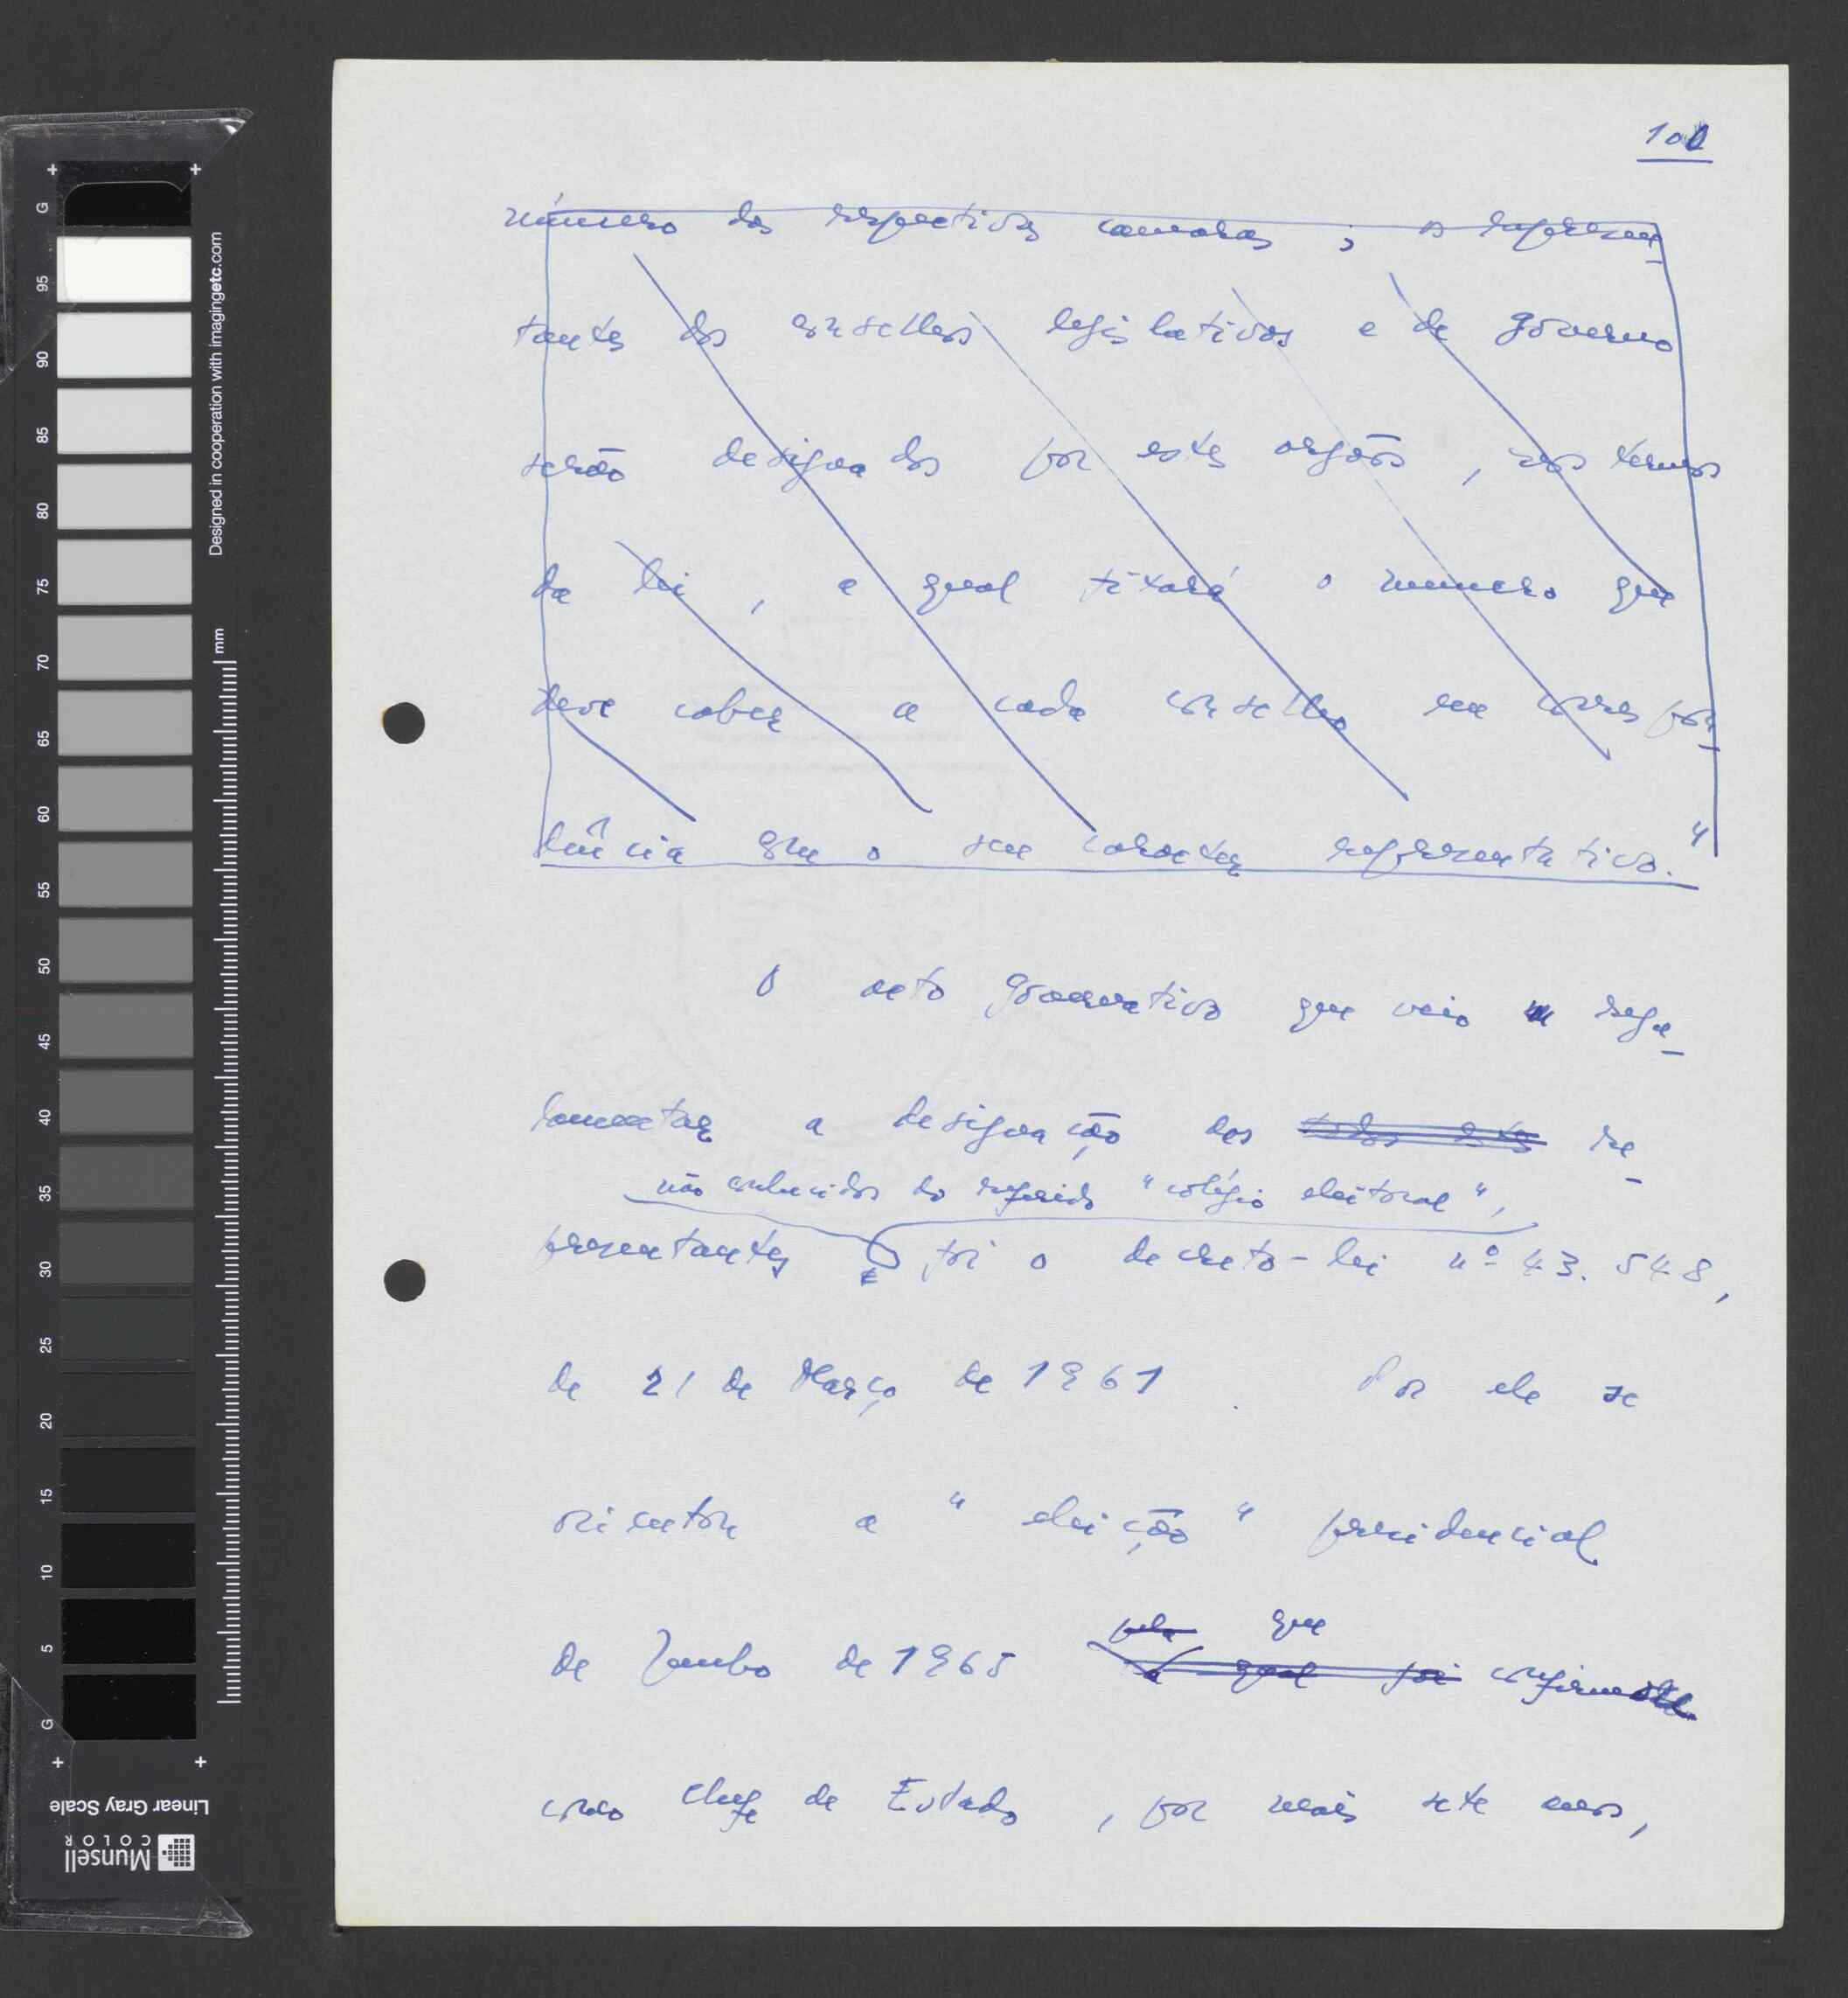 101
número das respectivas camaras ; os represen_
tantes dos conselhos legislativos e de governo
serão designados por estes orgãos , nos termos
da lei , a qual fixará o número que
deve caber a cada conselho em correspon_
dência com o seu caracter representativo."
O acto governativo que veio regu_
lamentar a designação dos todos estes re_
não conhecidos do referido "colégio eleitoral",
presentantes foi o decreto-lei nº 43.548,
de 21 de Março de 1961 . Por ele se
orientou a "eleição" presidencial
pela que
de Junho de 1965 a qual foi confirmou
como chefe de Estado , por mais sete anos,
Designed in cooperation with imagingetc.com
mm
G 95 90 85 80 75 70 65 60 55 50 45 40 35 30 25 20 15 10 5 G
Linear Gray Scale
Munsell
COLOR